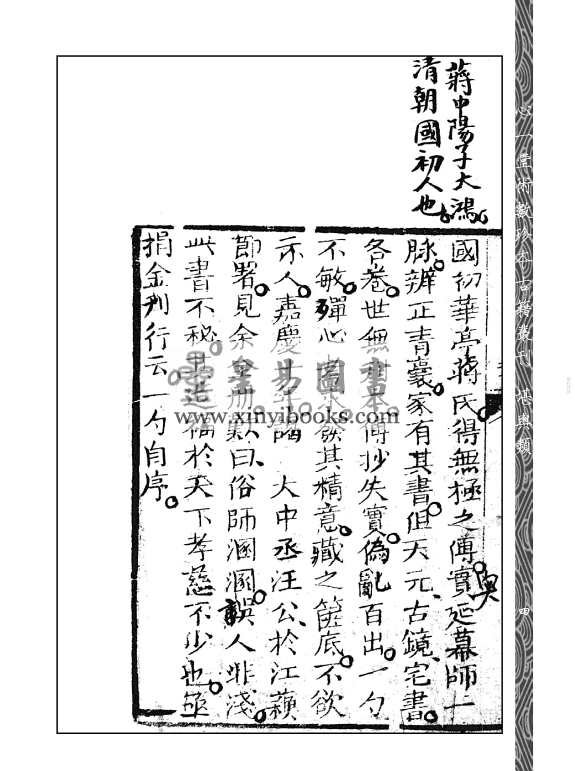 蔣中陽子大鴻
清朝國初人也
國初華亭蔣氏得無極之傳實延幕師十
脉辨正青囊家有其書但天元古鏡宅書
各卷世無 本傳抄失實偽亂百出一勺
不敏殫心 其精意藏之篋底不欲
示人嘉慶 大中丞汪公於江蘇
節署見余 冊歎曰俗師溷溷誤人非淺
此書不秘 福於天下孝慈不少也亟
捐金刋行云一勺自序
奧
心一堂術數珍本古籍叢刊 堪輿類
四
心一堂易圖書
www.xinyibooks.com